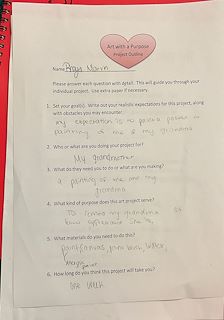 Art with a Purpose
Project Outline
Name
Please answer each question in detail. This will guide you through your
individual project. Use extra paper if necessary.
1. Set your goal(s). Write out your realistic expectations for this project, along
with obstacles you may encounter.
my expectation is to paint a
painting of me and my grandma
2. Who or what are you doing your project for?
My grandmother
3. What do they need you to do or what are you making?
a painting of me and my
grandma
4. What kind of purpose does this art project serve?
To remind my grandma of
5. What materials do you need to do this?
paint, canvas, paint brush, water,
6. How long do you think this project will take you?
one week